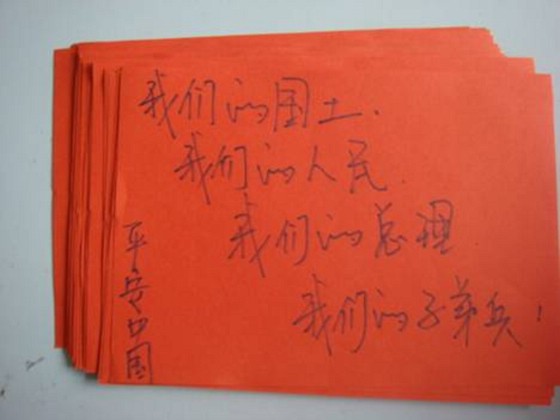 我们的国土.
我们的人民.
我们的总理
我们的子弟兵!
平安中国